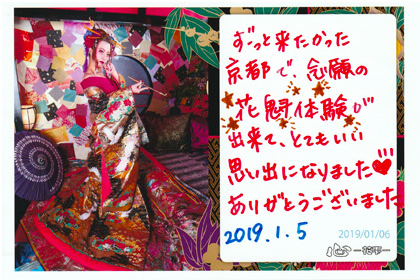 ずっと来たかった
京都で、念願の
花魁体験が
出来て、とてもいい
思い出になりました♡
ありがとうございました
2019.1.5
2019/01/06
心 —花雫—